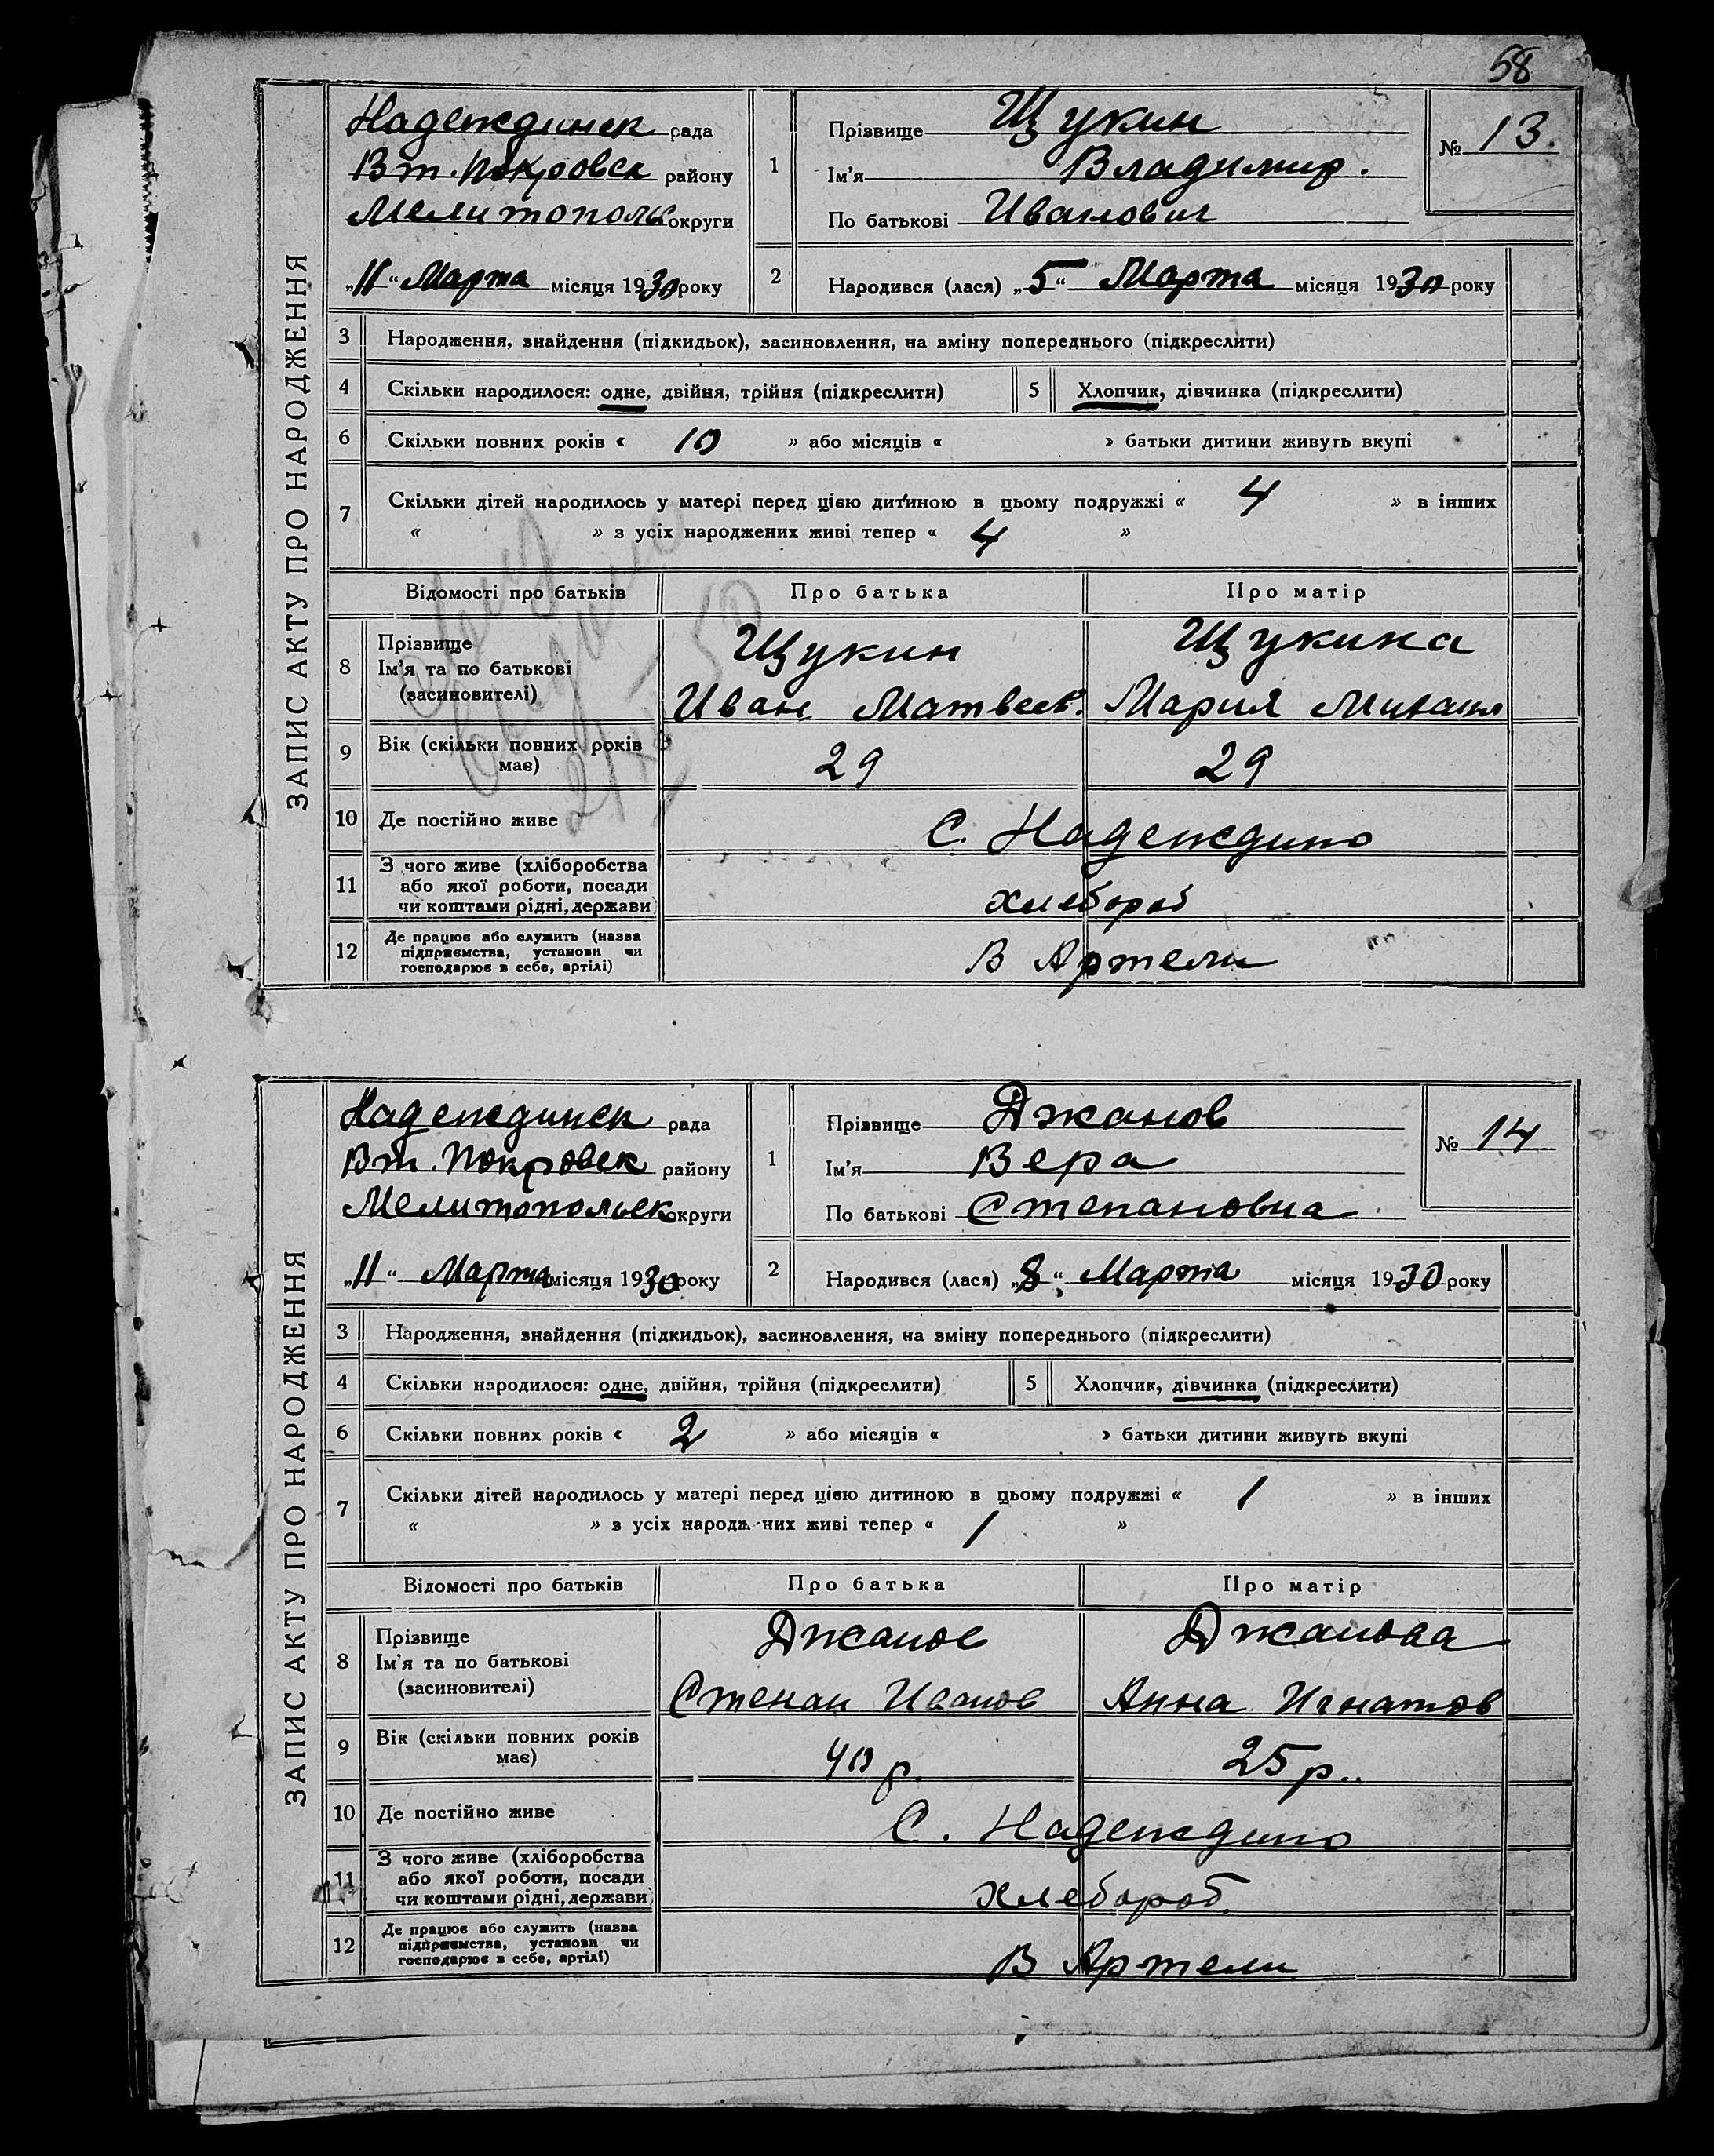 58
ЗАПИС АКТУ ПРО НАРОДЖЕННЯ
Надеждинск рада
Вт. Покровск району
Мелитополь округи
„11“ Марта місяця 1930 року
1
Прізвище Щукин
Ім’я Владимир.
По батькові Иванович
№ 13.
2 Народився (лася) „5“ Марта місяця 1930 року
3 Народження, знайдення (підкидьок), засиновлення, на зміну попереднього (підкреслити)
4 Скільки народилося: одне, двійня, трійня (підкреслити) 5 Хлопчик, дівчинка (підкреслити)
6 Скільки повних років « 10 » або місяців « » батьки дитини живуть вкупі
7 Скільки дітей народилось у матері перед цією дитиною в цьому подружжі « 4 » в інших
« » з усіх народжених живі тепер « 4 »
Відомості про батьків Про батька Про матір
8 Прізвище
Ім’я та по батькові
(засиновителі)
Щукин Щукина
Иван Матвеев. Мария Михаил
9 Вік (скільки повних років
має)
29 29
10 Де постійно живе С. Надеждино
11 З чого живе (хліборобства
або якої роботи, посади
чи коштами рідні, держави
хлебороб
12 Де працює або служить (назва
підприємства, установи чи
господарює в себе, артілі)
В Артели
ЗАПИС АКТУ ПРО НАРОДЖЕННЯ
Надеждинск рада
Вт. Покровск району
Мелитопольск округи
„11“ Марта місяця 1930 року
1
Прізвище Джанов
Ім’я Вера
По батькові Степановна
№ 14
2 Народився (лася) „8“ Марта місяця 1930 року
3 Народження, знайдення (підкидьок), засиновлення, на зміну попереднього (підкреслити)
4 Скільки народилося: одне, двійня, трійня (підкреслити) 5 Хлопчик, дівчинка (підкреслити)
6 Скільки повних років « 2 » або місяців « » батьки дитини живуть вкупі
7 Скільки дітей народилось у матері перед цією дитиною в цьому подружжі « 1 » в інших
« » з усіх народж них живі тепер « 1 »
Відомості про батьків Про батька Про матір
8 Прізвище
Ім’я та по батькові
(засиновителі)
Джанов Джанова
Степан Иванов Анна Игнатов
9 Вік (скільки повних років
має)
40 р. 25 р..
10 Де постійно живе С. Надеждино
11 З чого живе (хліборобства
або якої роботи, посади
чи коштами рідні, держави
хлебороб.
12 Де працює або служить (назва
підприємства, установи чи
господарює в себе, артілі)
В Артели